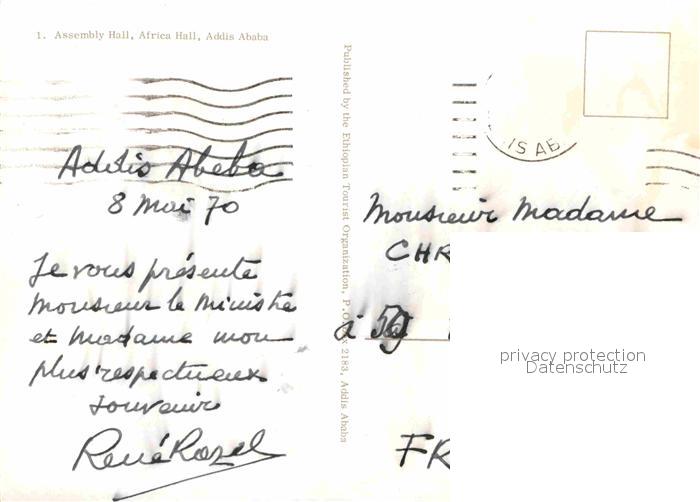 1. Assembly Hall, Africa Hall, Addis Ababa
Addis Abeba
8 Mai 70
Je vous présente
Monsieur le Ministre
et Madame mon
plus respectueux
souvenir
Published by the Ethiopian Tourist Organization, P.O. 2183, Addis Ababa
IS AB
Monsieur Madame
CHR
à
FR
privacy protection
Datenschutz